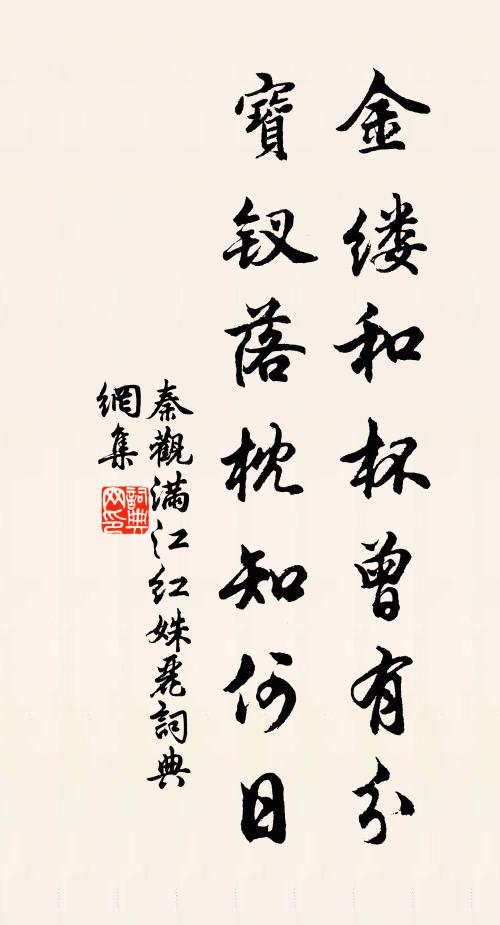 金缕和杯曾有分
寶釵落枕知何日
秦觀满江红姝麗詞典
網集
詞典
网印